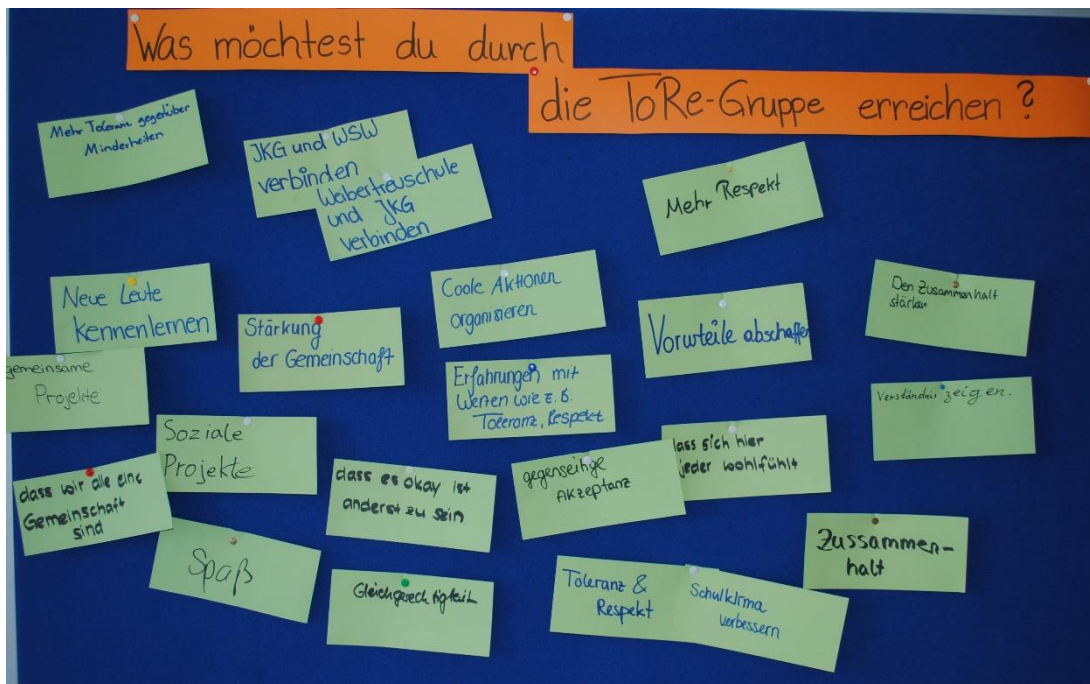 Was möchtest du durch
die ToRe-Gruppe erreichen?
Mehr Toleranz gegenüber
Minderheiten
JKG und WSW
verbinden
Weibertreuschule
und JKG
verbinden
Mehr Respekt
Neue Leute
kennenlernen
Stärkung
der Gemeinschaft
Coole Aktionen
organisieren
Vorurteile abschaffen
Den Zusammenhalt
stärken
gemeinsame
Projekte
Erfahrungen mit
Werten wie z.B.
Toleranz, Respekt
Verständnis zeigen.
Soziale
Projekte
dass wir alle eine
Gemeinschaft
sind
dass es okay ist
anderst zu sein
gegenseitige
Akzeptanz
dass sich hier
jeder wohlfühlt
Spaß
Gleichgerechtigkeit
Toleranz &
Respekt
Schulklima
verbessern
Zussammen-
halt